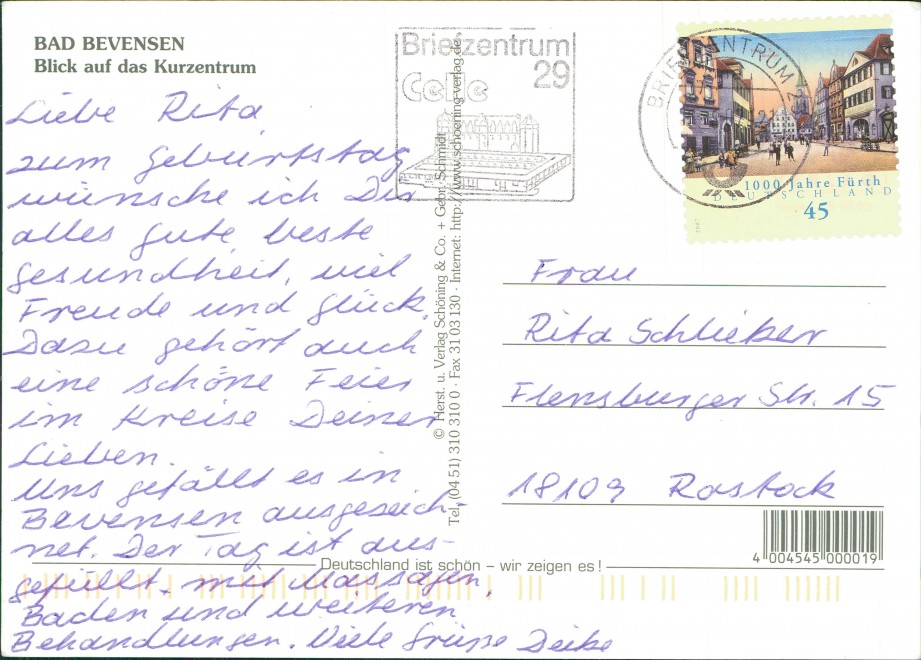 BAD BEVENSEN
Blick auf das Kurzentrum
Liebe Rita
zum Geburtstag
wünsche ich Dir
alles gute beste
gesundheit, viel
Freude und Glück.
Dazu gehört auch
eine schöne Feier
im Kreise Deiner
Lieben.
Uns gefällt es in
Bevensen ausgezeich-
net. Der Tag ist aus-
gefüllt mit Massagen,
Baden und weiteren
Behandlungen. Viele Grüße Deike
Briefzentrum
29
Celle
BRIEFZENTRUM
1000 Jahre Fürth
DEUTSCHLAND
45
© Herst. u. Verlag Schöning & Co. + Gebr. Schmidt
Tel. (04 51) 310 310 0 · Fax 31 03 130 · Internet: http://www.schoening-verlag.de
Frau
Rita Schlieker
Flensburger Str. 15
18109 Rostock
4 004545 000019
Deutschland ist schön – wir zeigen es!